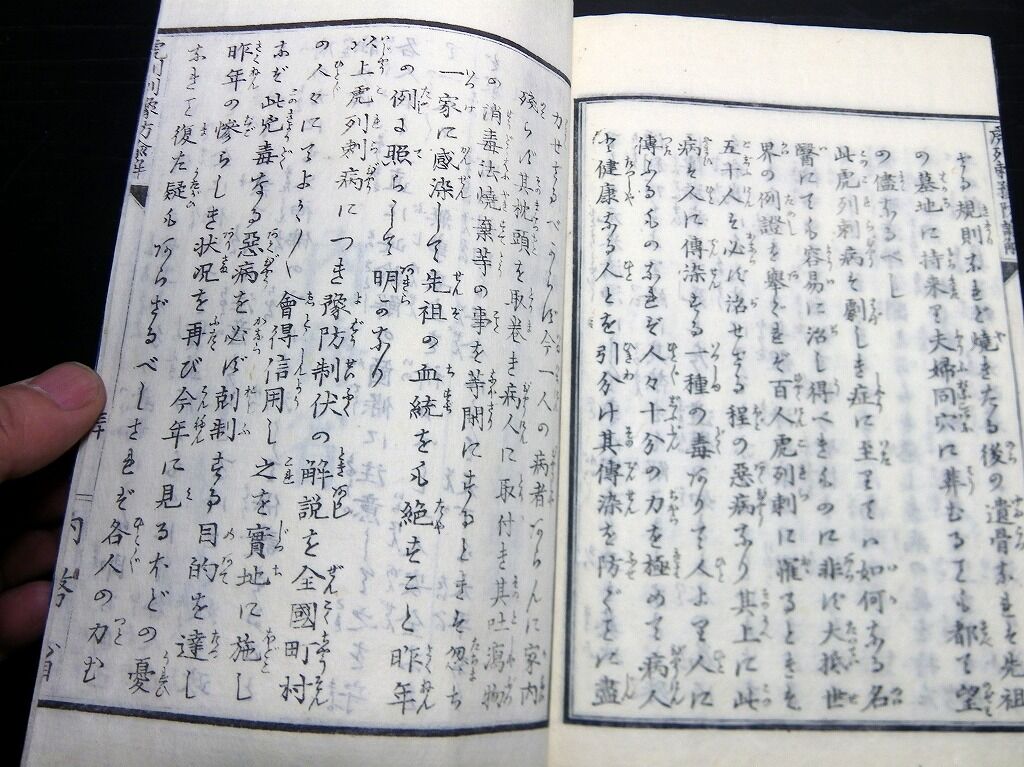 さる規則なれど焼きたる後の遺骨なれを先祖
の墓地に持来て夫婦同穴に葬むるとも都て望
の儘なるべし
此虎列刺病を劇しき症に至りてハ如何なる名
醫にても容易に治し得べきものに非ず大抵世
界の例證を擧ぐれど百人虎列刺に罹るときを
五十人を必ず治せざる程の惡病なり其上に此
病を人に傳染する一種の毒ありて人より人に
傳ふるものなれど人々十分の力を極めて病人
と健康なる人とを引分け其傳染を防ぐことに盡
力せずべからず今一人の病者あらんに家内
残らず其枕頭を取巻き病人に取付き其吐瀉物
の消毒法燒棄等の事を等閑にするときを忽ち
一家に感染して先祖の血統をも絶すこと昨年
の例に照らして明かなり
以上虎列刺病につき豫防制伏の解説を全國町村
の人々にてよく〳〵會得信用し之を實地に施し
なば此兇毒なる惡病を必ず剋制する目的を達し
昨年の慘らしき状況を再び今年に見るなどの憂
なきこと復た疑もあらざるべしされど各人の力む
虎列刺豫防諭解
内務省